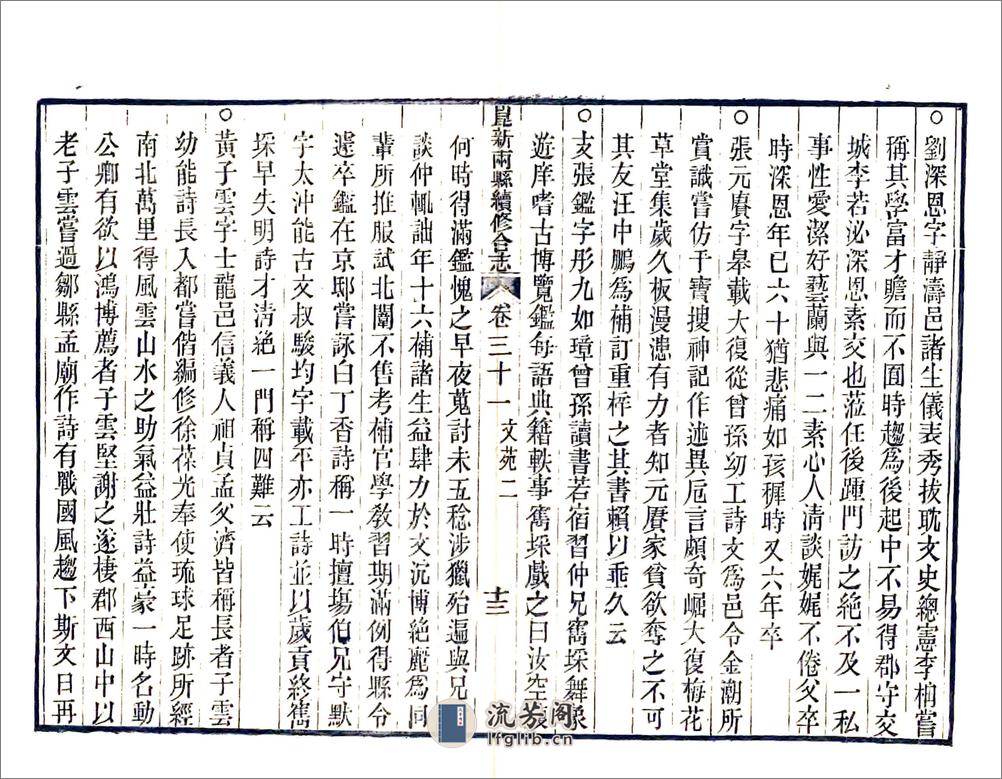 ○劉深恩字靜濤邑諸生儀表秀拔耽文史總憲李柟嘗
稱其學富才贍而不囿時趨為後起中不易得郡守交
城李若泌深恩素交也蒞任後踵門訪之絶不及一私
事性愛潔好藝蘭與一二素心人淸談娓娓不倦父卒
時深恩年已六十猶悲痛如孩穉時又六年卒
○張元賡字皋載大復從曾孫幼工詩文為邑令金潮所
賞識嘗仿于寶搜神記作述異卮言頗奇崛大復梅花
草堂集歲久板漫漶有力者知元賡家貧欲奪之不可
其友汪中鵬為補訂重梓之其書賴以垂久云
○支張鑑字彤九如璋曾孫讀書若宿習仲兄寯埰舞象
遊庠嗜古博覽鑑每語典籍軼事寯埰戲之曰汝空
崑新兩縣續修合志 卷三十一 文苑二 十三
何時得滿鑑愧之早夜蒐討未五稔涉獵殆遍與兄
談仲輒詘年十六補諸生益肆力於文沉博絶麗為同
輩所推服試北闈不售考補官學敎習期滿例得縣令
遽卒鑑在京邸嘗詠白丁香詩稱一時擅塲伯兄守默
字太沖能古文叔駿圴字載平亦工詩並以歲貢終寯
埰早失明詩才淸絕一門稱四難云
○黃子雲字士龍邑信義人祖貞孟父濟皆稱長者子雲
幼能詩長入都嘗偕編修徐葆光奉使琉球足跡所經
南北萬里得風雲山水之助氣益壯詩益豪一時名動
公卿有欲以鴻博薦者子雲堅謝之遂棲郡西山中以
老子雲嘗過鄒縣孟廟作詩有戰國風趨下斯文日再
流芳阁
lfglib.cn